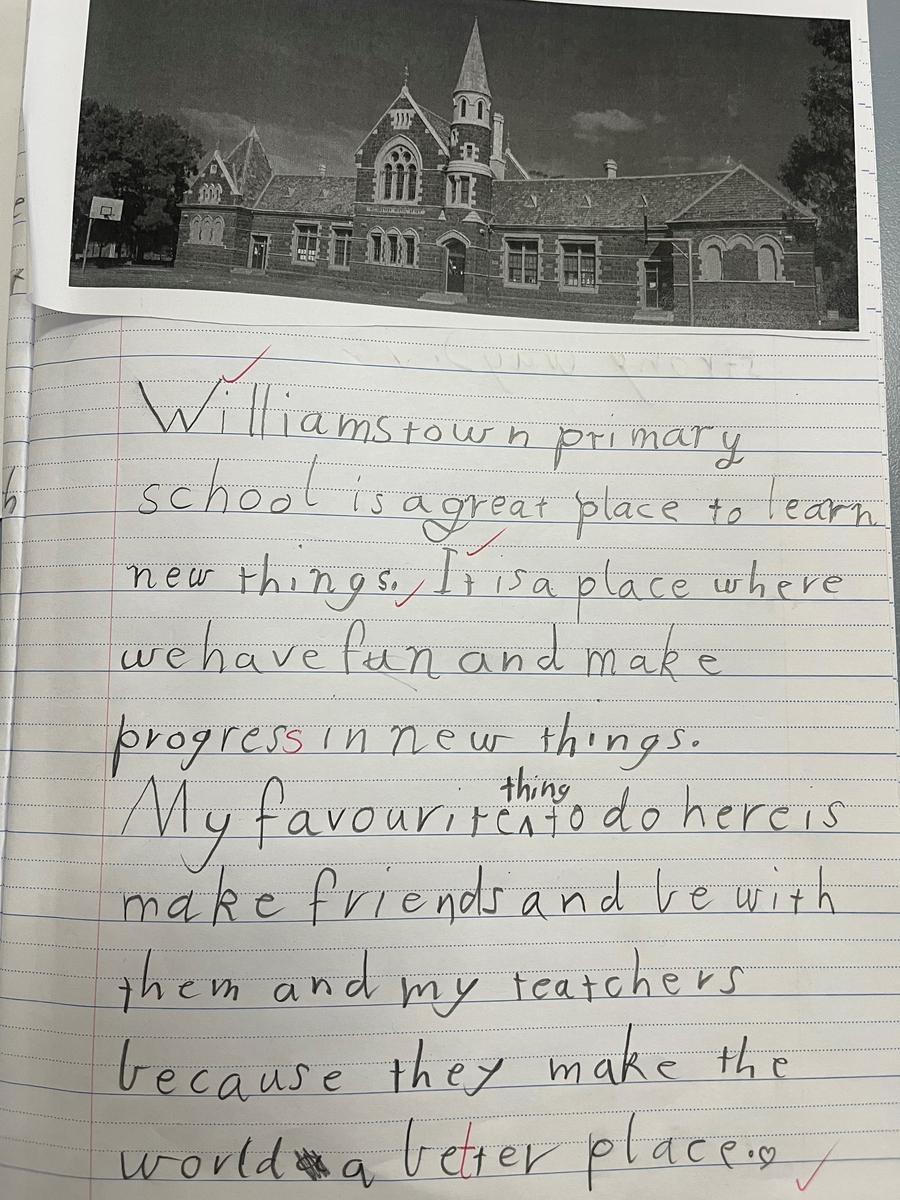 Williamstown primary
school is a great place to learn
new things. It is a place where
we have fun and make
progress in new things.
thing
My favourite ^ to do here is
make friends and be with
them and my teatchers
because they make the
world a better place.